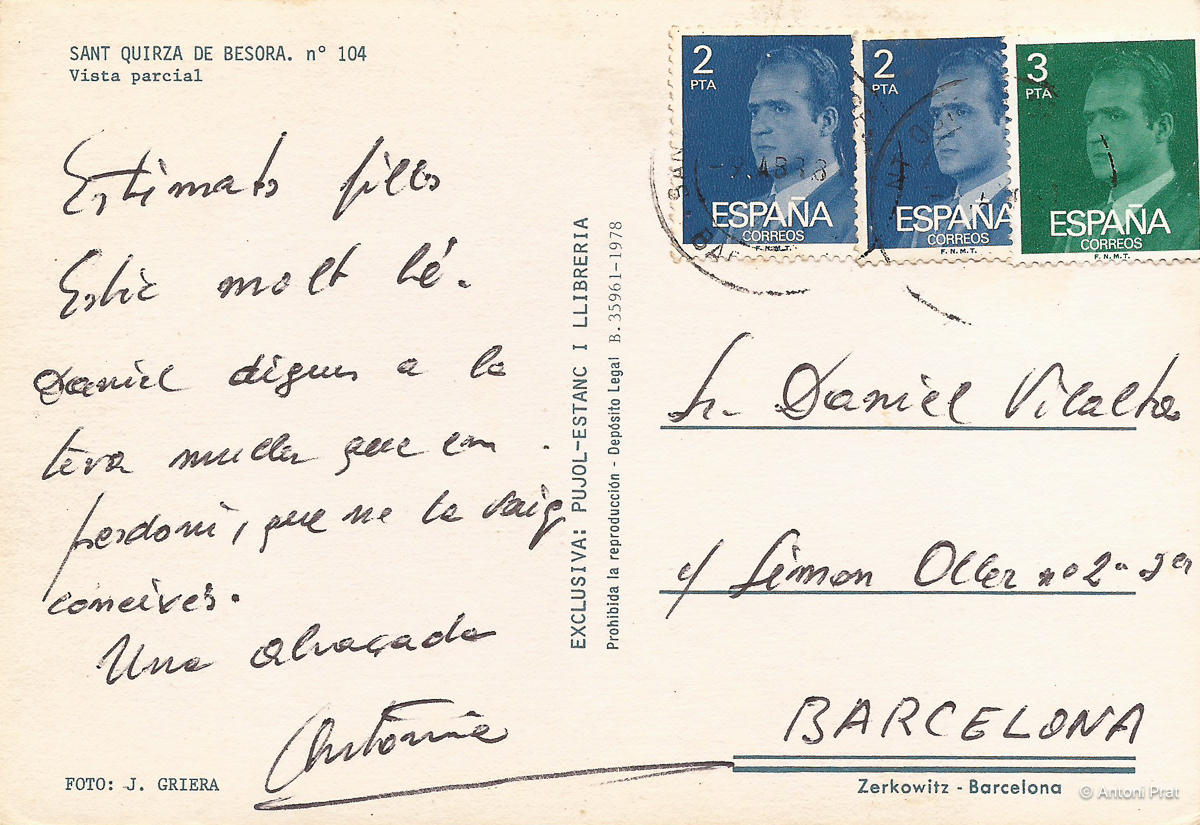 SANT QUIRZA DE BESORA. nº 104
Vista parcial
Estimats fills
Estic molt bé.
Daniel digues a la
teva muller que em
perdoni, que ne la vaig
coneixes.
Una abraçada
Antònia
FOTO: J. GRIERA
EXCLUSIVA: PUJOL-ESTANC I LLIBRERIA
Prohibida la reproducción - Depósito Legal B. 35961-1978
2
PTA
ESPAÑA
CORREOS
F.N.M.T.
2
PTA
ESPAÑA
CORREOS
F.N.M.T.
3
PTA
ESPAÑA
CORREOS
F.N.M.T.
Sr. Daniel Vilalta
c/ Simon Oller nº 2
BARCELONA
Zerkowitz - Barcelona
© Antoni Prat